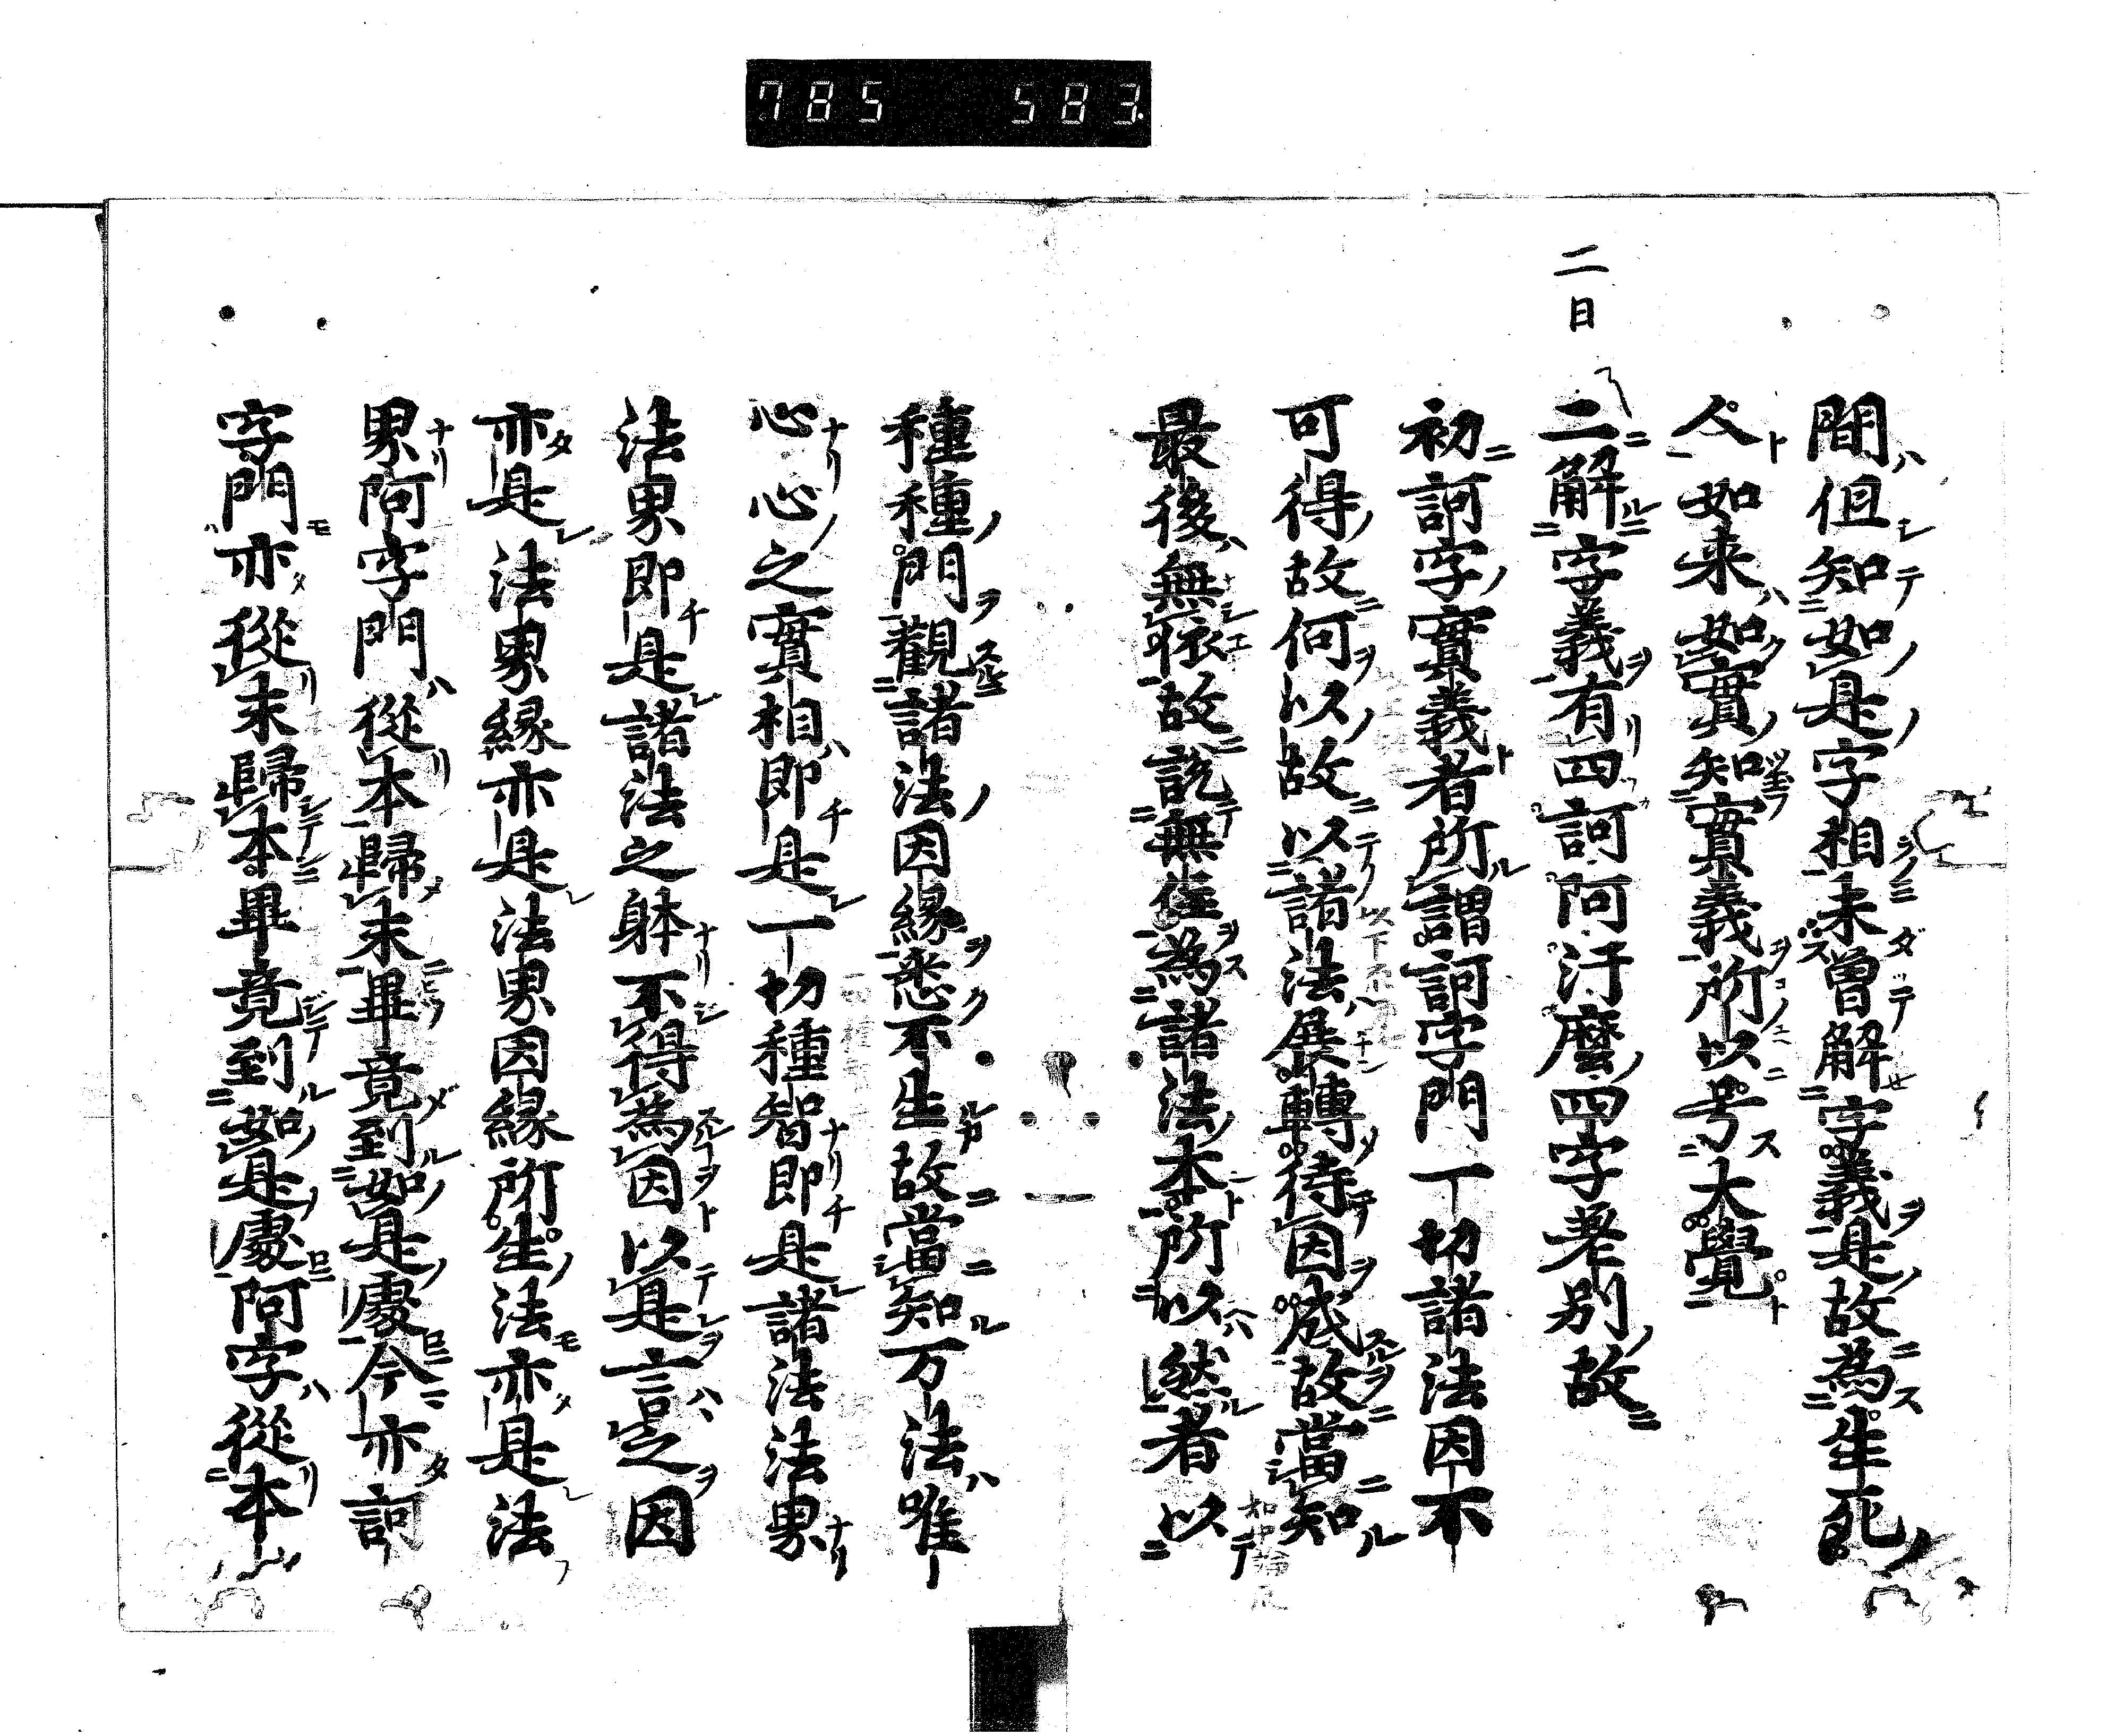 785 583.
間但知如是字相未曽解字義是故為生死
人如来如實知實義所以号大覺
二日
二解字義有四訶阿汙麼四字差別故
初訶字實義者所謂訶字門一切諸法因不
可得故何以故以諸法展轉待因成故當知
最後無依故説無住為諸法本所以然者以
種種門觀諸法因緣悉不生故當知万法唯
心心之實相即是一切種智即是諸法法界
法界即是諸法之躰不得為因以是言之因
亦是法界緣亦是法界因緣所生法亦是法
界阿字門從本歸末畢竟到如是處今亦訶
字門亦從末歸本畢竟到如是處阿字從本